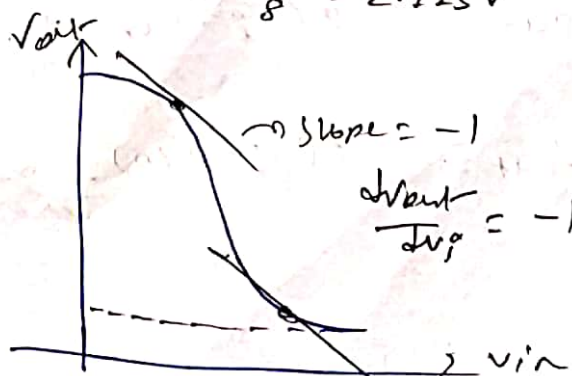 8 2.125V
Vout
→ slope = -1
dvout
dvi = -1
vin